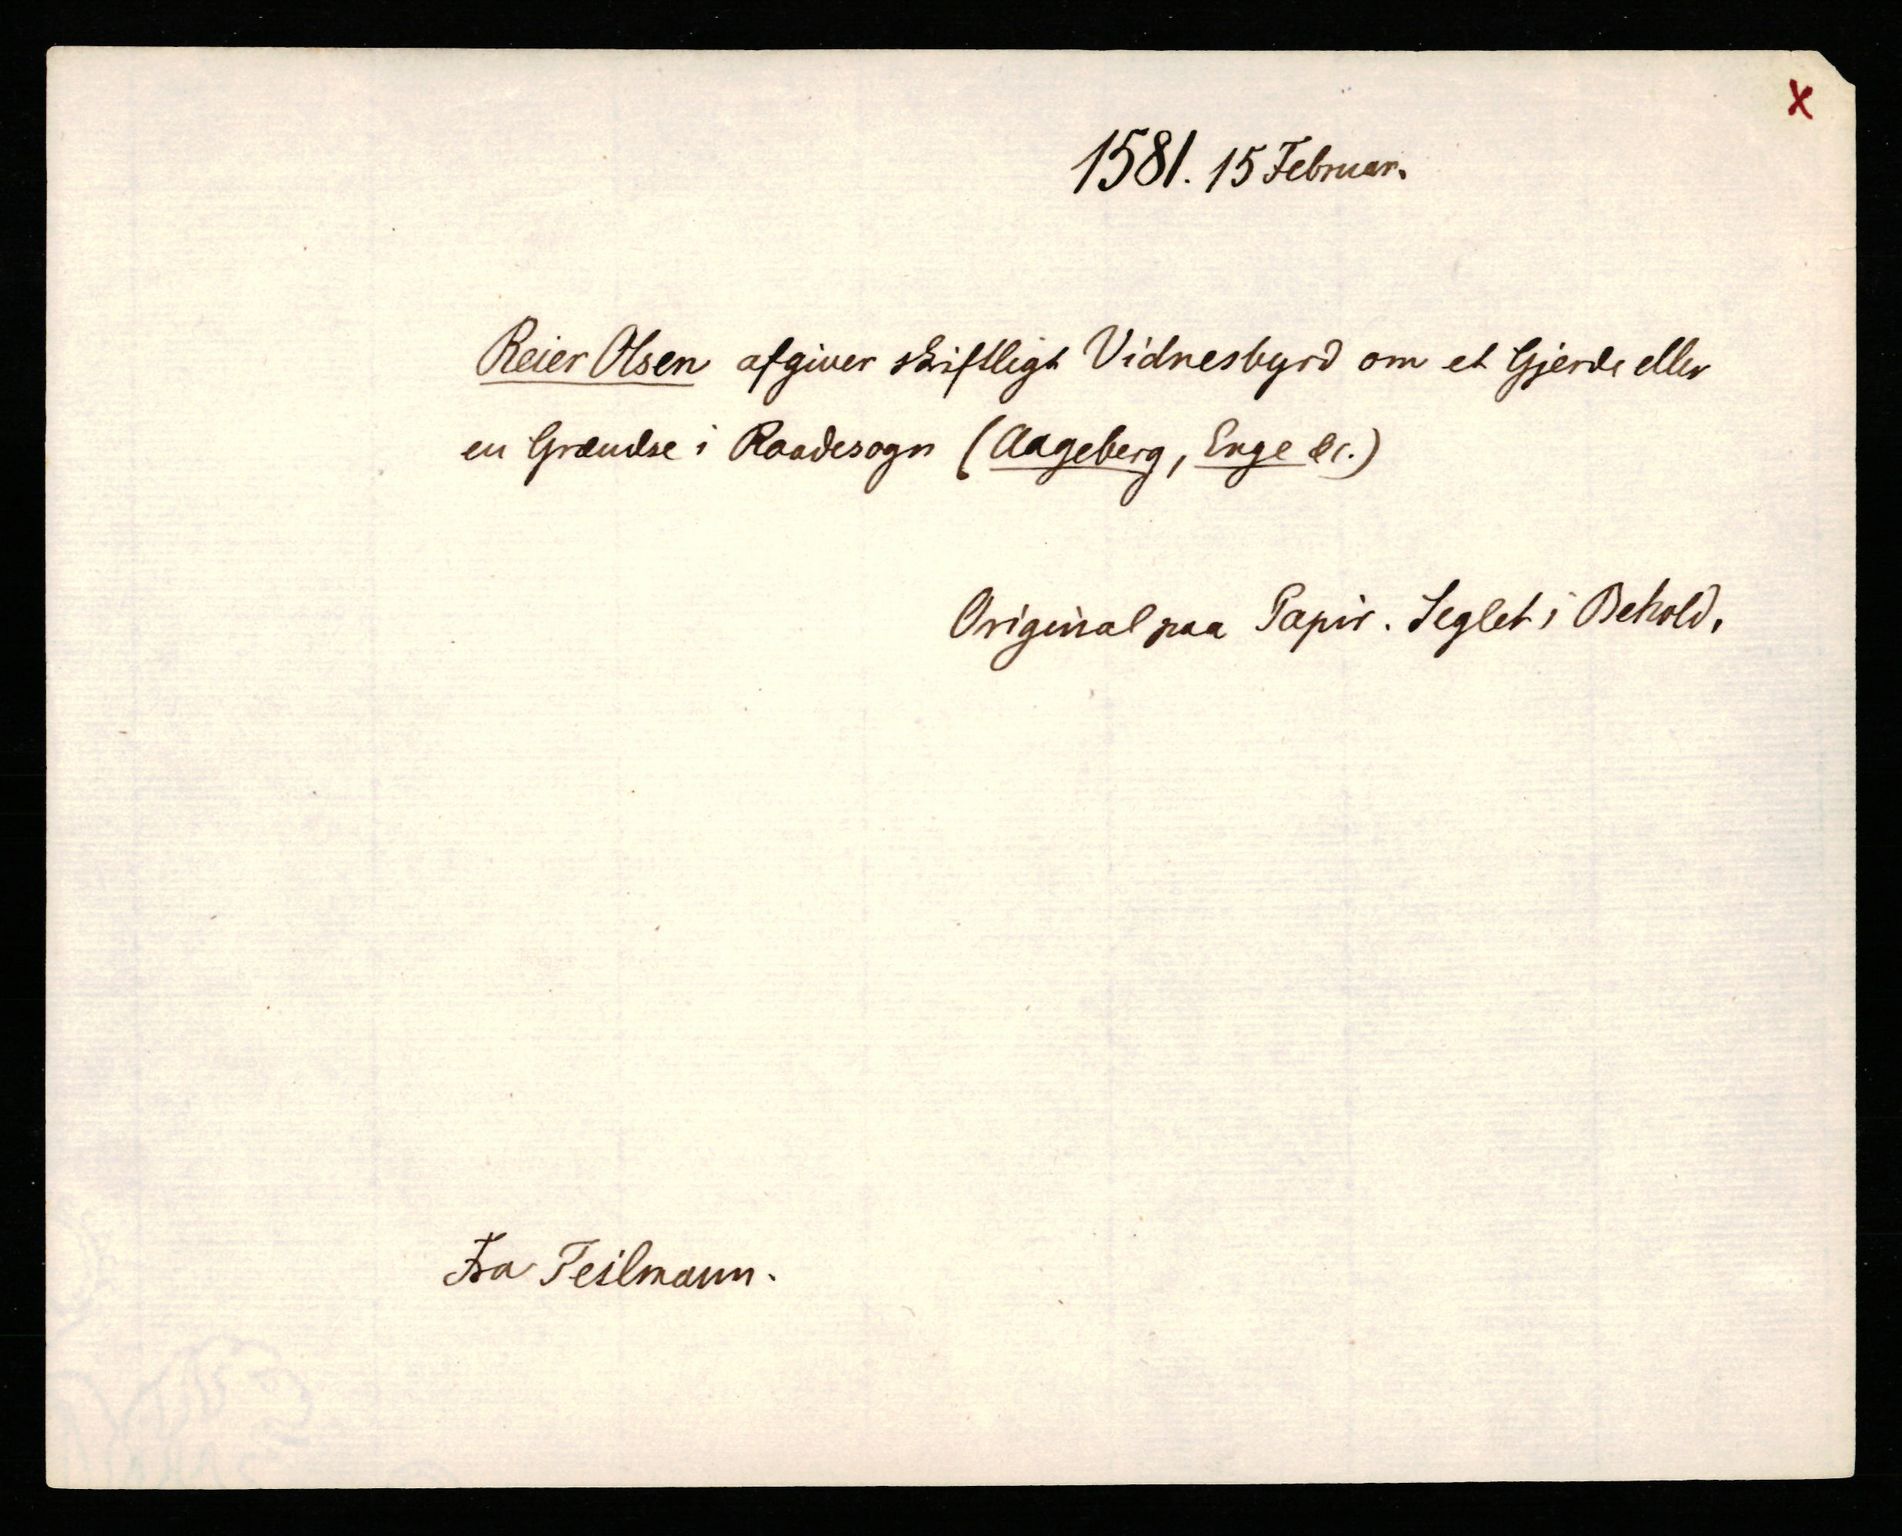 x
1581. 15 Februar.
Reier Olsen afgiver skriftligt Vidnesbyrd om et Gjerde eller
en Grændse i Raadesogn (Aageberg, Enge &c.)
Original paa Papir. Seglet i Behold.
Fra Teilmann.